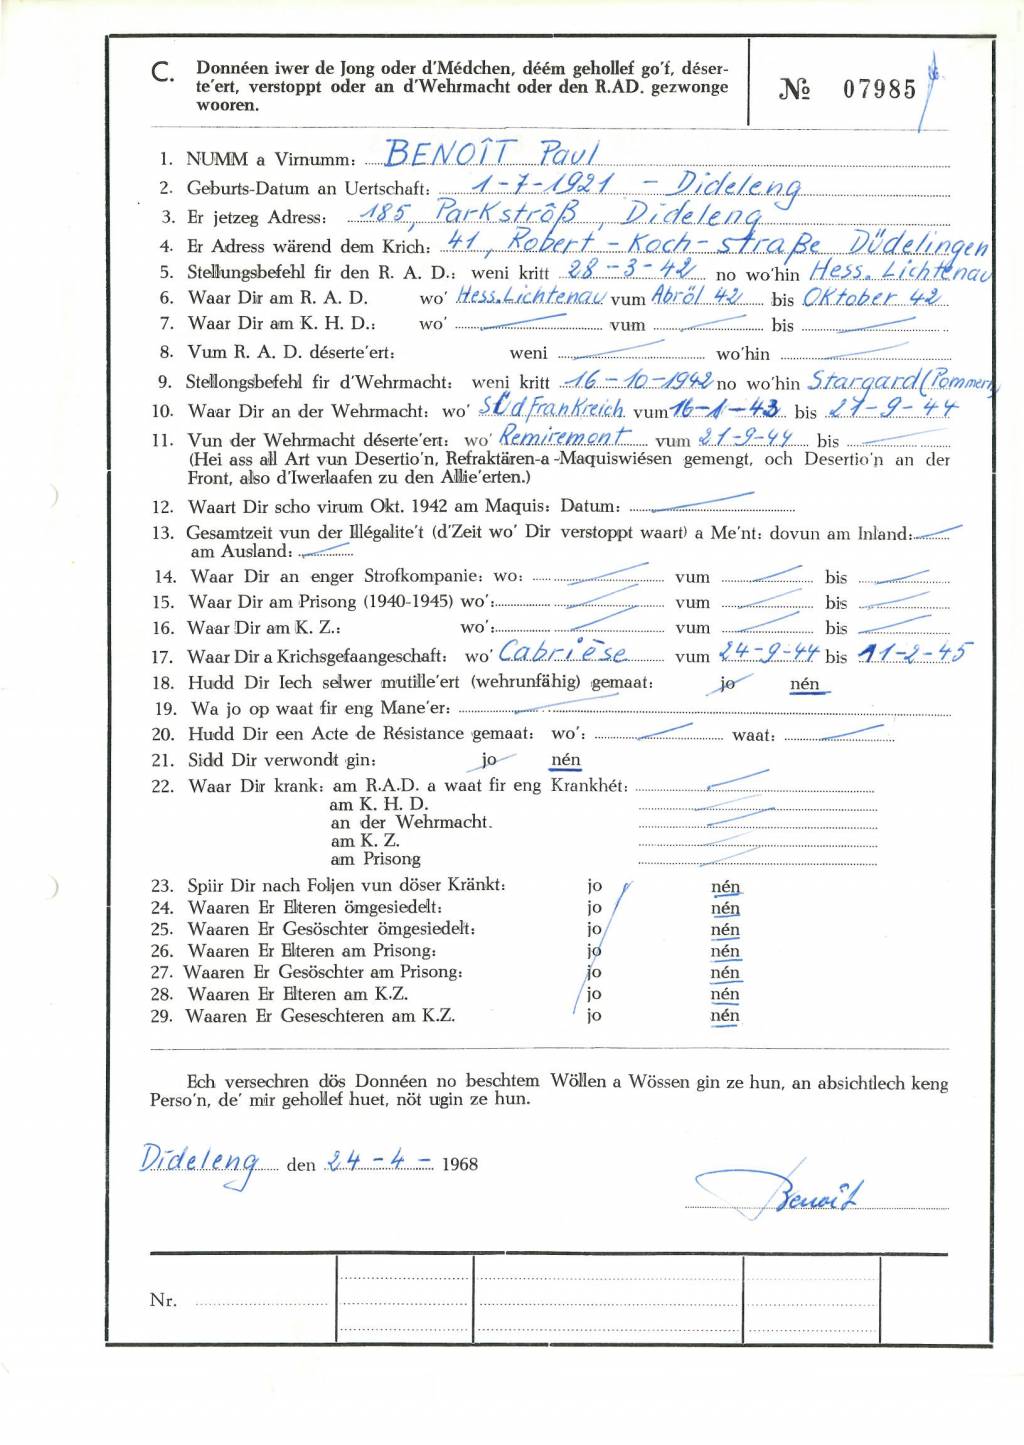 C. Donnéen iwer de Jong oder d'Médchen, déém gehollef go'f, déser-
te'ert, verstoppt oder an d'Wehrmacht oder den R.AD. gezwonge
wooren.
№ 07985
1. NUMM a Virnumm: BENOÎT Paul
2. Geburts-Datum an Uertschaft: 1-7-1921 - Dideleng
3. Er jetzeg Adress: 185, Parkströß, Dideleng
4. Er Adress wärend dem Krich: 41, Robert-Koch-straße Düdelingen
5. Stellungsbefehl fir den R. A. D.: weni kritt 28-3-42 no wo'hin Hess. Lichtenau
6. Waar Dir am R. A. D. wo' Hess. Lichtenau vum Abröl 42 bis Oktober 42
7. Waar Dir am K. H. D.: wo' vum bis
8. Vum R. A. D. déserte'ert: weni wo'hin
9. Stellongsbefehl fir d'Wehrmacht: weni kritt 16-10-1942 no wo'hin Stargard (Pommern)
10. Waar Dir an der Wehrmacht: wo' Südfrankreich vum 16-1-43 bis 21-9-44
11. Vun der Wehrmacht déserte'ert: wo' Remiremont vum 21-9-44 bis
(Hei ass all Art vun Desertio'n, Refraktären-a-Maquiswiésen gemengt, och Desertio'n an der
Front, also d'Iwerlaafen zu den Allie'erten.)
12. Waart Dir scho virum Okt. 1942 am Maquis: Datum:
13. Gesamtzeit vun der Illégalite't (d'Zeit wo' Dir verstoppt waart) a Me'nt: dovun am Inland:
am Ausland:
14. Waar Dir an enger Strofkompanie: wo: vum bis
15. Waar Dir am Prisong (1940-1945) wo': vum bis
16. Waar Dir am K. Z.: wo': vum bis
17. Waar Dir a Krichsgefaangeschaft: wo' Cabriése vum 24-9-44 bis 11-2-45
18. Hudd Dir Iech selwer mutille'ert (wehrunfähig) gemaat: jo nén
19. Wa jo op waat fir eng Mane'er:
20. Hudd Dir een Acte de Résistance gemaat: wo': waat:
21. Sidd Dir verwondt gin: jo nén
22. Waar Dir krank: am R.A.D. a waat fir eng Krankhét:
am K. H. D.
an der Wehrmacht.
am K. Z.
am Prisong
23. Spiir Dir nach Foljen vun döser Kränkt: jo nén
24. Waaren Er Elteren ömgesiedelt: jo nén
25. Waaren Er Gesöschter ömgesiedelt: jo nén
26. Waaren Er Elteren am Prisong: jo nén
27. Waaren Er Gesöschter am Prisong: jo nén
28. Waaren Er Elteren am K.Z. jo nén
29. Waaren Er Geseschteren am K.Z. jo nén
Ech versechren dös Donnéen no beschtem Wöllen a Wössen gin ze hun, an absichtlech keng
Perso'n, de' mir gehollef huet, nöt ugin ze hun.
Dideleng den 24-4- 1968
Benoît
Nr.